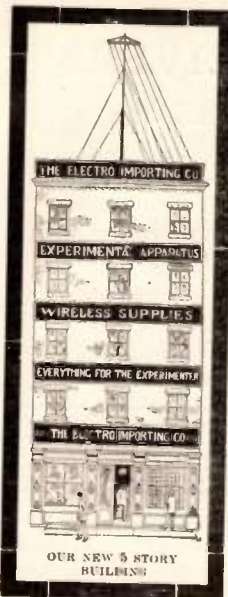 THE ELECTRO IMPORTING CO
EXPERIMENTAL APPARATUS
WIRELESS SUPPLIES
EVERYTHING FOR THE EXPERIMENTER
THE ELECTRO IMPORTING CO
OUR NEW 5 STORY
BUILDING